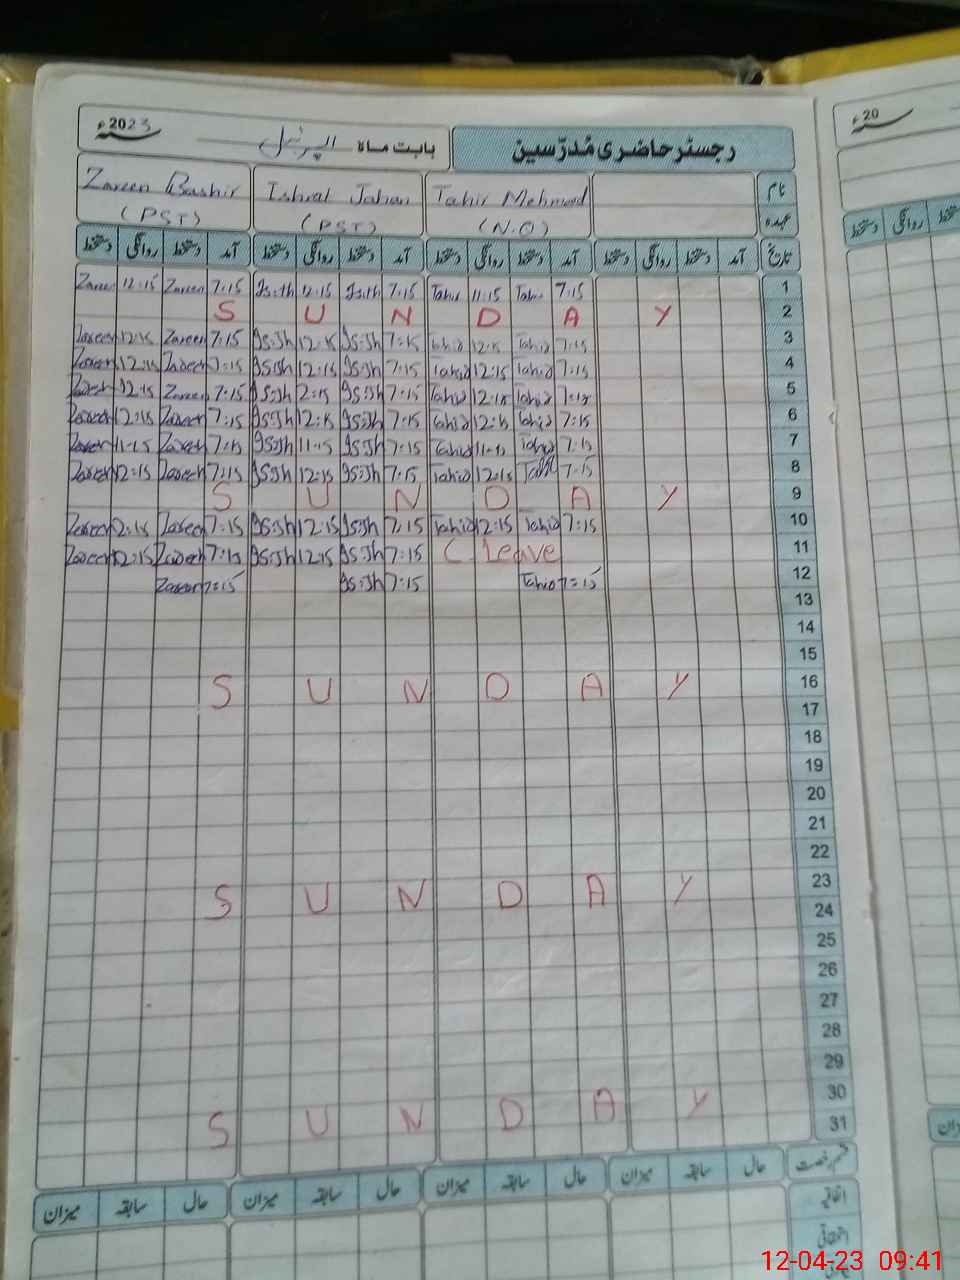 رجسٹر حاضری مُدرّسین بابت ماہ اپریل 2023ء
نام Zareen Bashir Ishrat Jahan Tahir Mehmood
عہدہ (PST) (PST) (N.Q)
تاریخ آمد دستخط روانگی دستخط آمد دستخط روانگی دستخط آمد دستخط روانگی دستخط آمد دستخط روانگی دستخط
Zareen 12:15 Zareen 7:15 12:15 7:15 Tahir 11:15 Tahir 7:15 1
S U N D A Y 2
Zareen 12:15 Zareen 7:15 12:15 7:15 Tahir 12:15 Tahir 7:15 3
Zareen 12:15 Zareen 7:15 12:15 7:15 Tahir 12:15 Tahir 7:15 4
Zareen 12:15 Zareen 7:15 2:15 7:15 Tahir 12:15 Tahir 7:15 5
Zareen 12:15 Zareen 7:15 12:15 7:15 Tahir 12:15 Tahir 7:15 6
Zareen 11:15 Zareen 7:15 11:15 7:15 Tahir 11:15 Tahir 7:15 7
Zareen 12:15 Zareen 7:15 12:15 7:15 Tahir 12:15 7:15 8
S U N D A Y 9
Zareen 12:15 Zareen 7:15 12:15 7:15 Tahir 12:15 Tahir 7:15 10
Zareen 12:15 Zareen 7:15 12:15 7:15 C Leave 11
Zareen 7:15 7:15 Tahir 7:15 12
13
14
15
S U N D A Y 16
17
18
19
20
21
22
S U N D A Y 23
24
25
26
27
28
29
S U N D A Y 30
31
قسم رخصت حال سابقہ میزان حال سابقہ میزان حال سابقہ میزان حال سابقہ میزان
اتفاقیہ
20ء
دستخط روانگی
12-04-23 09:41